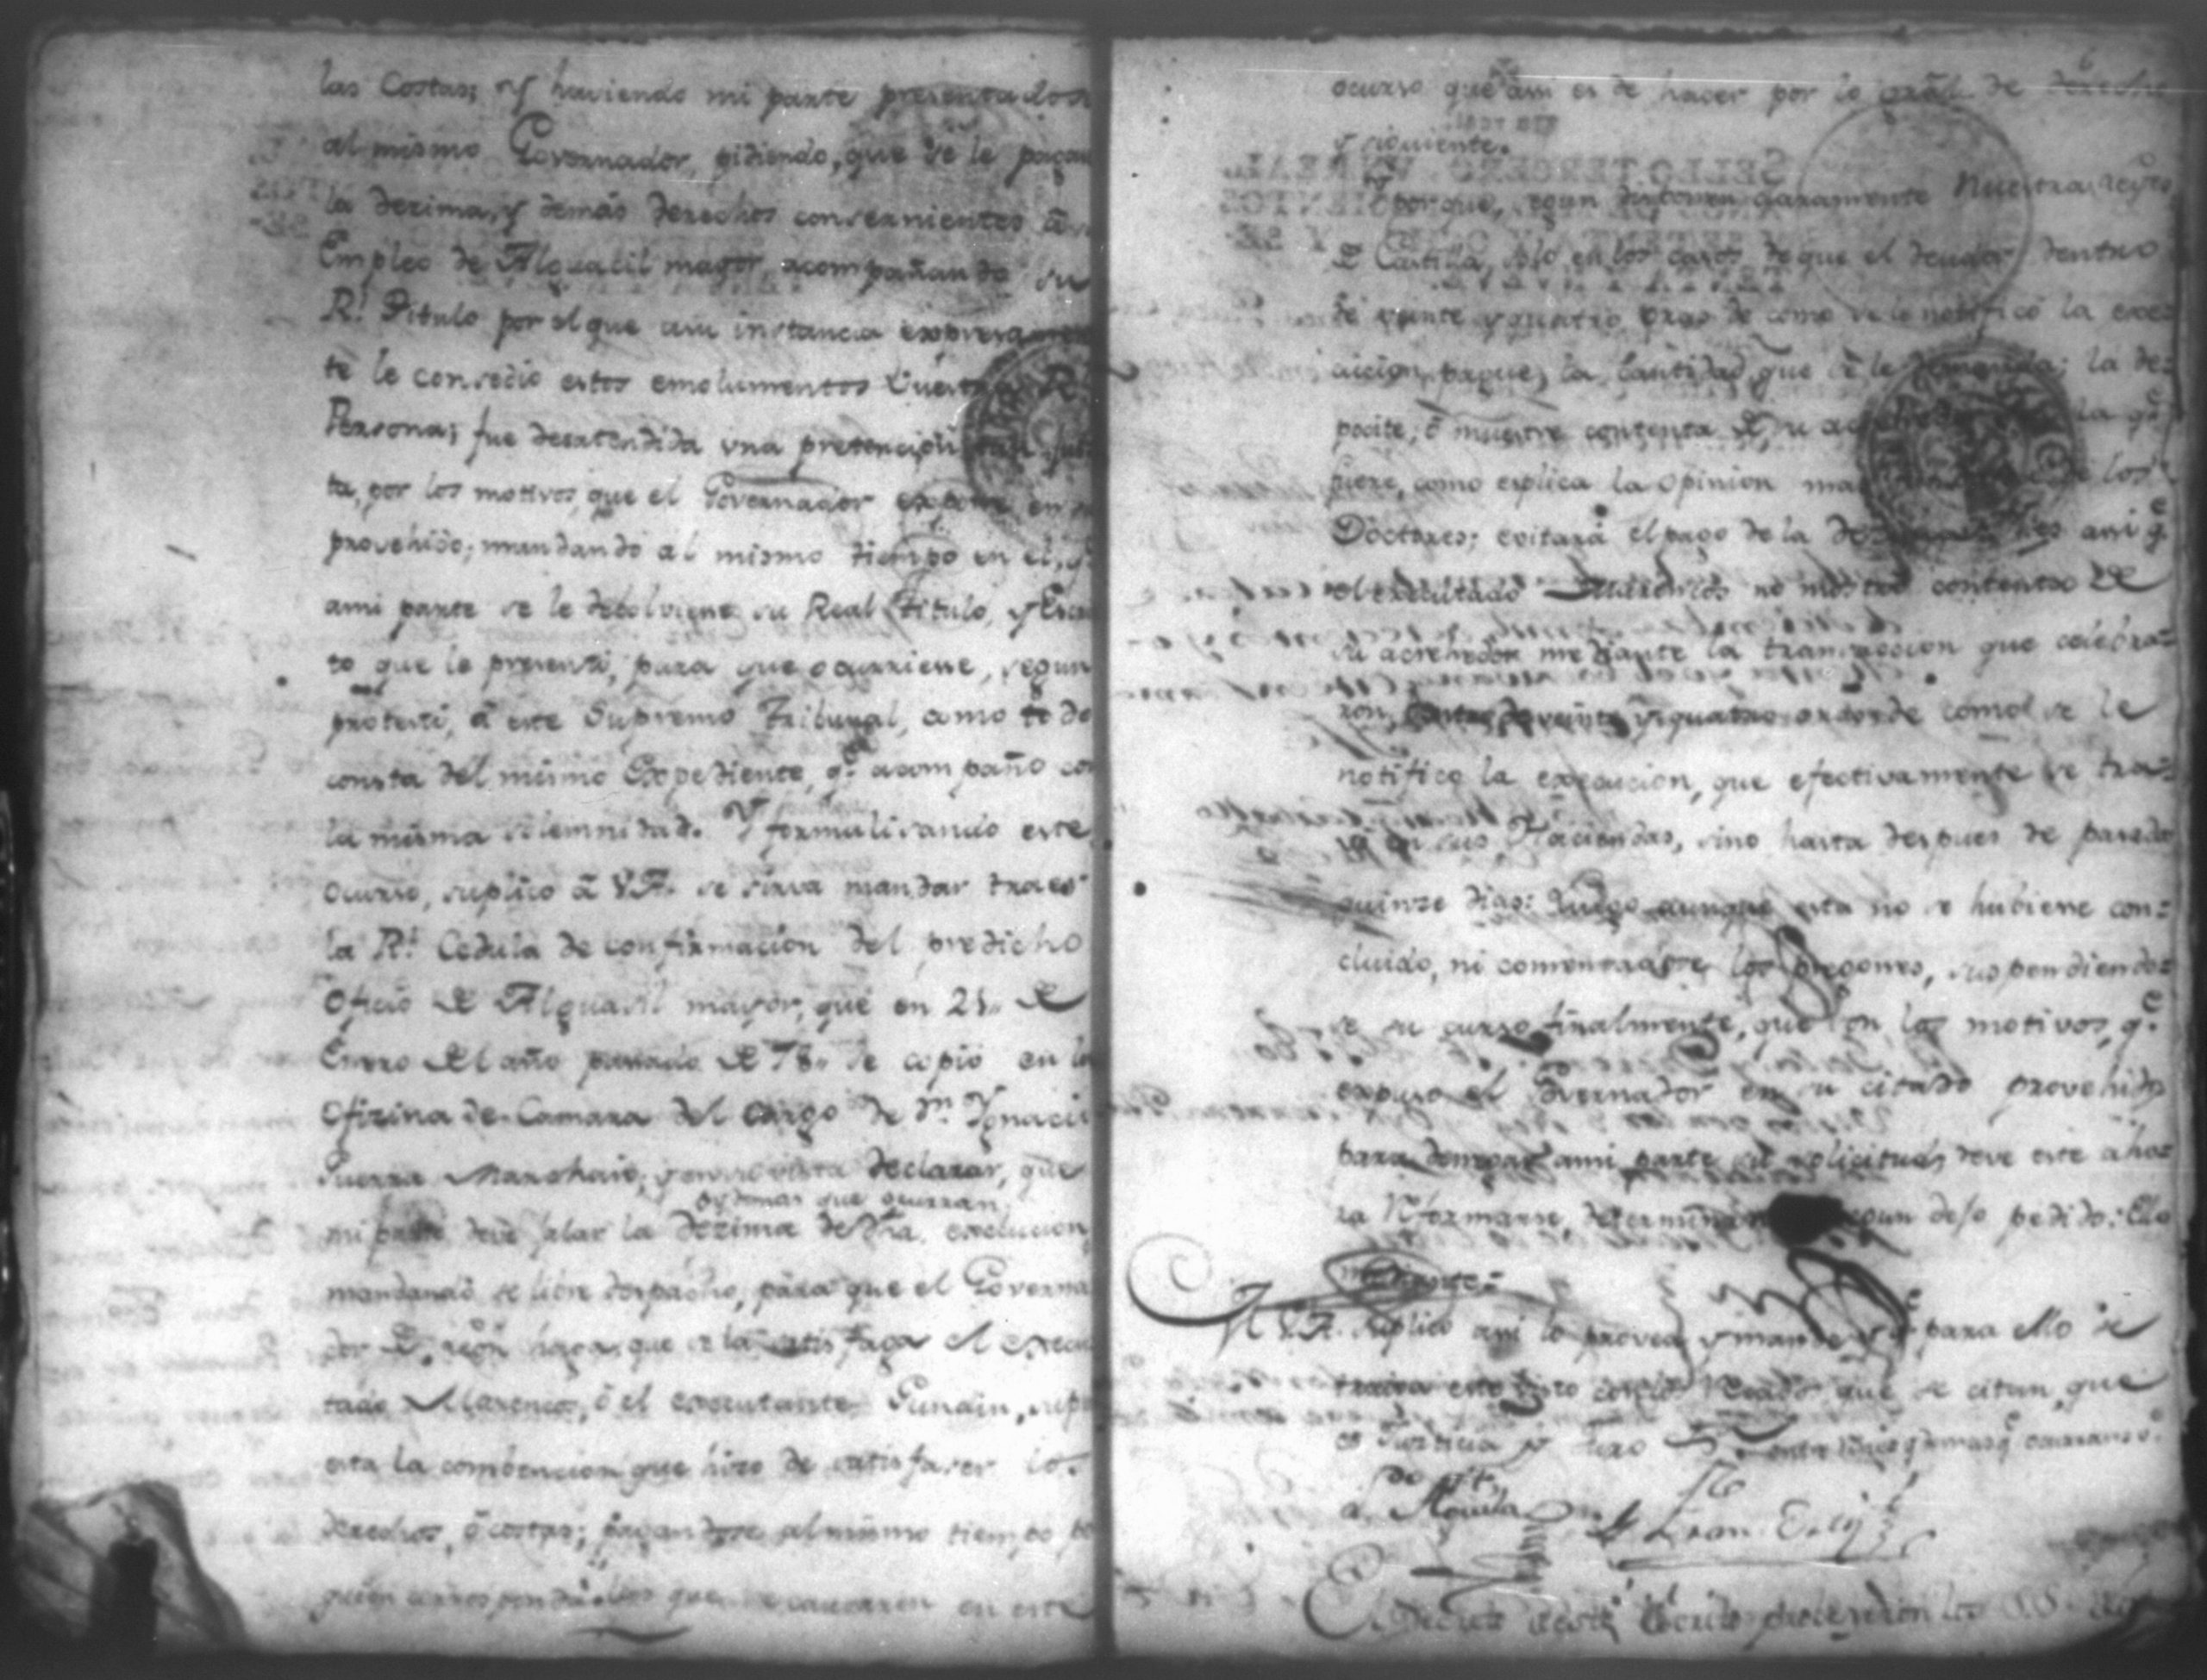 las Costas; y haviendo mi parte presentados
al mismo Governador, pidiendo, que se le pagan
la dezima, y demás derechos consernientes à
Empleo de Alguacil mayor, acompañando su
Rl. Titulo por el que a su instancia expresamen
te le consedio estos emolumentos Vuestra Rl.
Persona; fue desatendida una pretencion tan jus
ta, por los motivos, que el Governador expone en
provehido; mandando al mismo tiempo en el, q.
a mi parte se le debolviese su Real Titulo, y Escri
to que le presentó, para que ocurriese, segun
protestó, à este Supremo Tribunal, como todo
consta del mismo Expediente, qe. acompaño co
la misma solemnidad. Y formalisando este
ocurso, suplico à V.A. se sirva mandar traer
la Rl. Cedula de confirmacion del predicho
Oficio de Alguasil mayor, que en 21,, de
Enero del año pasado de 78,, se copió en la
Ofizina de Camara del cargo de Dn. Ygnacio
Guerra Marchan; y en su vista declarar, que
oy demas que ocurran
mi parte deve jalar la dezima de dha. execucion,
mandando se libre despacho, para que el Governa
dor de Leon haga, que se la satisfaga el execu
tado Marenco, ó el executante Gunain,
esta la combencion que hizo de satisfaser los
derechos, ó costas; pagandose al mismo tiempo
quien corresponda los que se causaren en este
6
ocurso que assi es de hacer por lo gral. de derecho
y siguiente.
Y porque, segun disponen claramente Nuestras Leyes
de Castilla, solo en los casos de que el deudor dentro
de veinte y quatro oras de como se le notificó la exe-
cucion, pague, la cantidad, que se le demanda; la de-
posite; ó muestre contenta de su la qe.
piere, como explica la opinion mas los
Doctores; evitará el pago de la assi qe.
el executado Marenco no mostró contenta de
su acrehedor mediante la transaccion que celebra-
ron, antes de veinte y quatro oras de como se le
notificó la execucion, que efectivamente se tra-
bó en sus Haciendas, sino hasta despues de pasado
quinze dias: Luego aunque esta no se hubiese con-
cluido, ni comensadose los pregones, suspendiendo-
se su curso finalmente, que son los motivos, qe.
expuso el Governador en su citado provehido
para denegar a mi parte su solicitud, deve este aho-
ra reformarse, determinan segun dejo pedido: Ello
mediante=
A V.A. suplico assi lo provea y mande y qe. para ello se
traiga esto con los que se citan, que
es Justicia y Juro
Fran. Ortiz
El Decreto de este Escrito proveyeron los S.S.